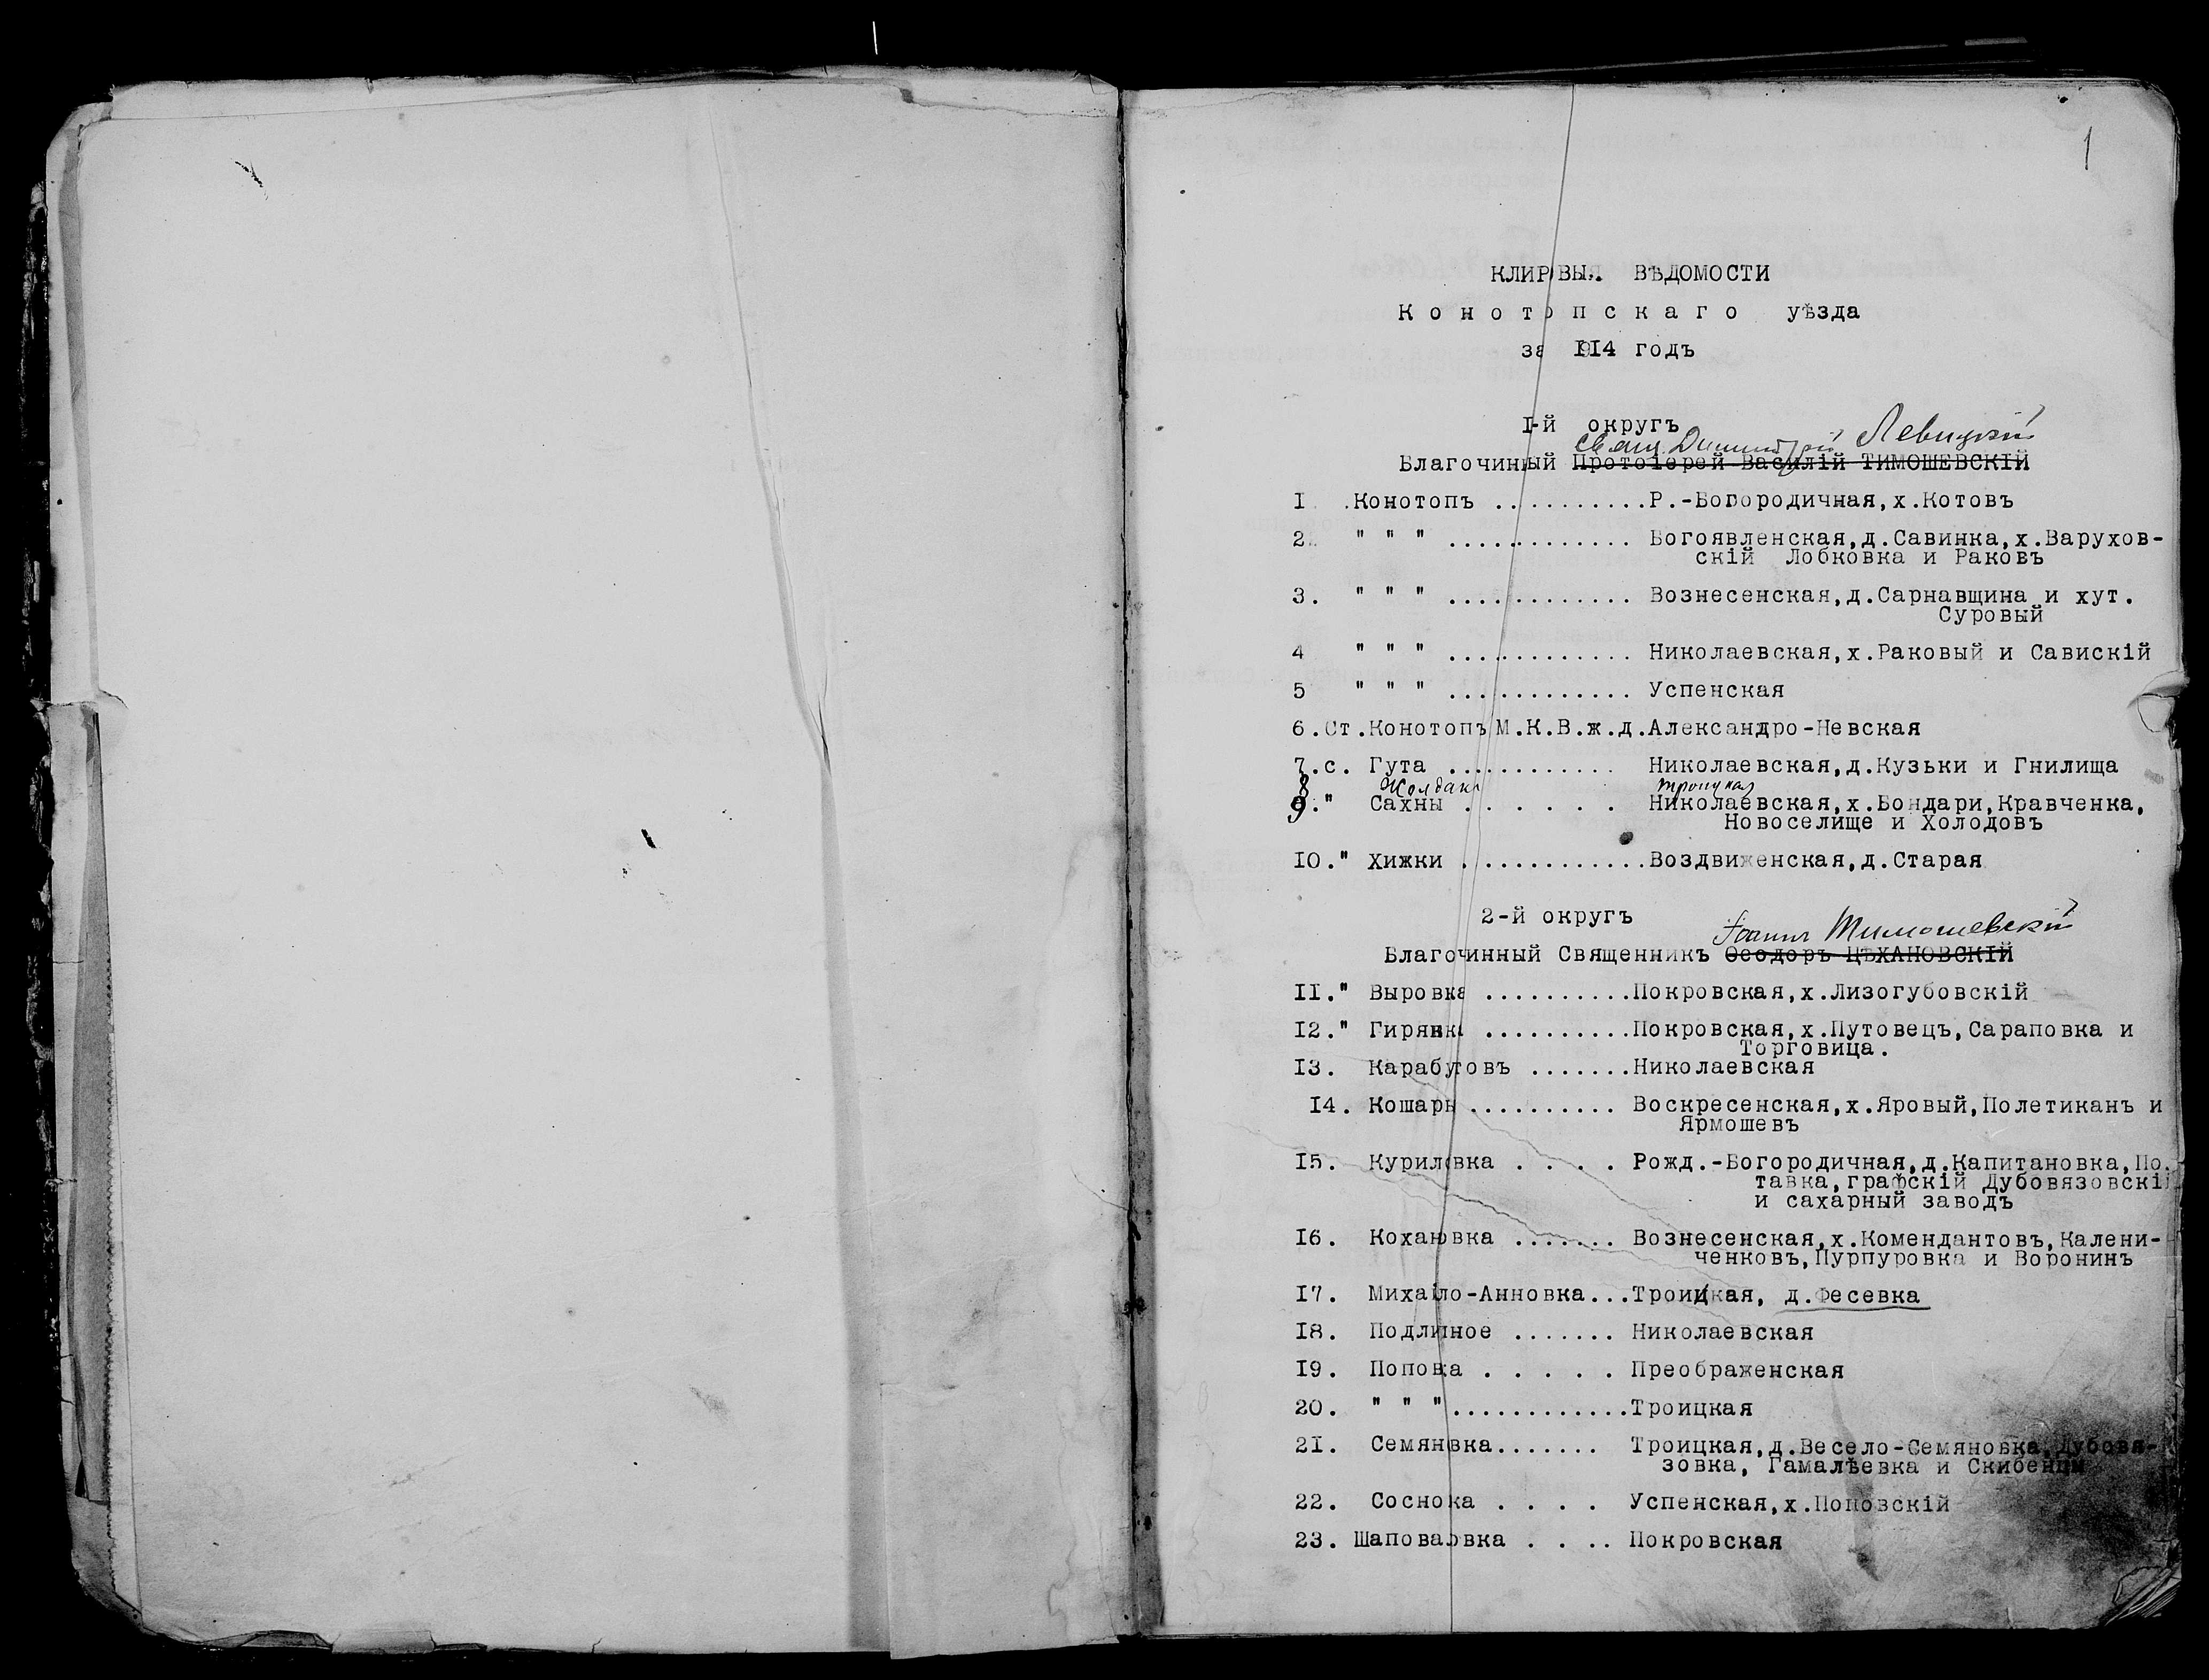 1
КЛИРОВЫЯ ВѢДОМОСТИ
Конотопскаго уѣзда
за 1914 годъ
I-й округъ
Свящ. Димитрій Левицкій
Благочинный Протоіерей Василій ТИМОШЕВСКІЙ
I .Конотопъ ..........Р.-Богородичная,х.Котовъ
2. " " " ............ Богоявленская,д.Савинка,х.Варухов-
скій Лобковка и Раковъ
3. " " " ............ Вознесенская,д.Сарнавщина и хут.
Суровый
4 " " " ............ Николаевская,х.Раковый и Савискій
5 " " " ............ Успенская
6.Ст.Конотопъ М.К.В.ж.д.Александро-Невская
7.с. Гута ........... Николаевская,д.Кузьки и Гнилища
8 Жолдаки Троицкая
9." Сахны . . . . . . Николаевская,х.Бондари,Кравченка,
Новоселище и Холодовъ
IO." Хижки ............Воздвиженская,д.Старая
2-й округъ
Іоаннъ Тимошевскій
Благочинный Священникъ Ѳеодоръ ЦѢХАНОВСКІЙ
II." Выровка ..........Покровская,х.Лизогубовскій
I2." Гирявка ..........Покровская,х.Путовецъ,Сараповка и
Торговица.
I3. Карабутовъ .......Николаевская
I4. Кошары .......... Воскресенская,х.Яровый,Полетиканъ и
Ярмошевъ
I5. Куриловка . . . . Рожд.-Богородичная,д.Капитановка,По.
тавка,графскій Дубовязовскій
и сахарный заводъ
I6. Кохановка ....... Вознесенская,х.Комендантовъ,Калени-
ченковъ,Пурпуровка и Воронинъ
I7. Михайло-Анновка...Троицкая, д.Фесевка
I8. Подлипное ....... Николаевская
I9. Поповка . . . . . Преображенская
20. " " "............Троицкая
2I. Семяновка....... Троицкая,д.Весело-Семяновка,Дубовя-
зовка, Гамалѣевка и Скибенцы
22. Сосновка . . . . Успенская,х.Поповскій
23. Шаповаловка . . .. Покровская